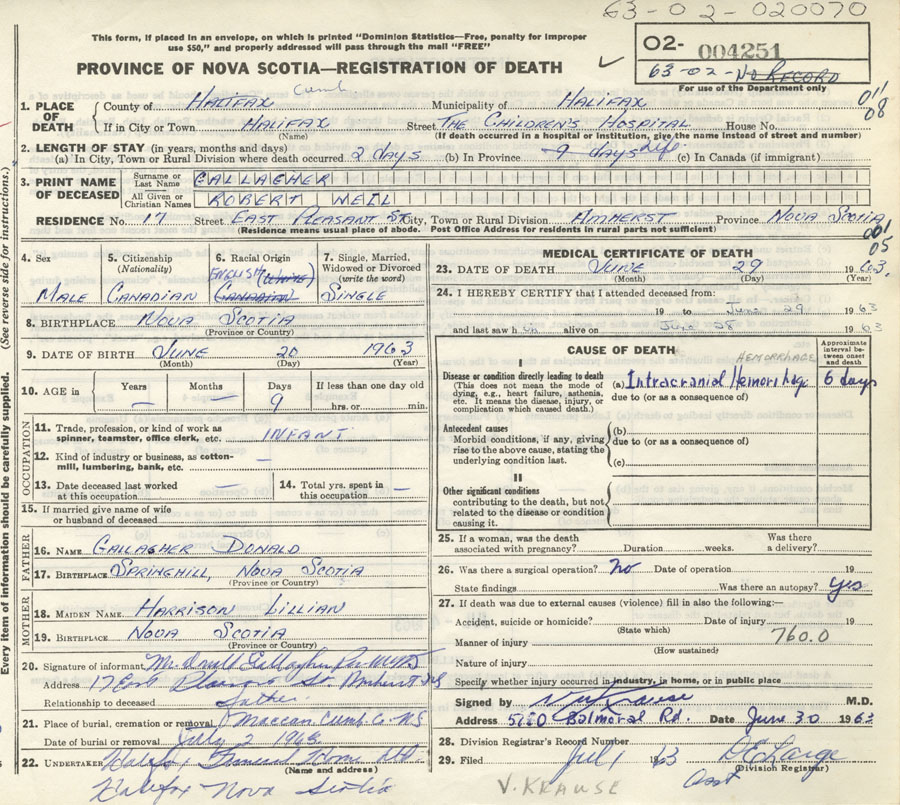 63-02-020070
This form, if placed in an envelope, on which is printed "Dominion Statistics—Free, penalty for improper
use $50," and properly addressed will pass through the mail "FREE"
PROVINCE OF NOVA SCOTIA—REGISTRATION OF DEATH
02- 004251
63-02-NO RECORD
For use of the Department only
1. PLACE OF DEATH
County of HALIFAX Cumb Municipality of HALIFAX 011 08
If in City or Town HALIFAX Street THE CHILDREN'S HOSPITAL House No.
(Name) (If death occurred in a hospital or institution, give the name instead of street and number)
2. LENGTH OF STAY (in years, months and days)
(a) In City, Town or Rural Division where death occurred 2 days (b) In Province 9 days Life (c) In Canada (if immigrant)
3. PRINT NAME OF DECEASED
Surname or Last Name GALLAGHER
All Given or Christian Names ROBERT NEIL
RESIDENCE No. 17 Street EAST PLEASANT ST. City, Town or Rural Division AMHERST Province NOVA SCOTIA
(Residence means usual place of abode. Post Office Address for residents in rural parts not sufficient)
001
05
4. Sex MALE
5. Citizenship (Nationality) CANADIAN
6. Racial Origin ENGLISH (WHITE) CANADIAN
7. Single, Married, Widowed or Divorced (write the word) SINGLE
8. BIRTHPLACE NOVA SCOTIA
(Province or Country)
9. DATE OF BIRTH JUNE 20 1963
(Month) (Day) (Year)
10. AGE in Years — Months — Days 9 If less than one day old hrs. or min.
OCCUPATION
11. Trade, profession, or kind of work as spinner, teamster, office clerk, etc. INFANT
12. Kind of industry or business, as cotton-mill, lumbering, bank, etc. —
13. Date deceased last worked at this occupation —
14. Total yrs. spent in this occupation —
15. If married give name of wife or husband of deceased
FATHER
16. NAME GALLAGHER DONALD
17. BIRTHPLACE SPRINGHILL, NOVA SCOTIA
(Province or Country)
MOTHER
18. MAIDEN NAME HARRISON LILLIAN
19. BIRTHPLACE NOVA SCOTIA
(Province or Country)
20. Signature of informant Mr. Gallagher Per
Address 17 East Pleasant St. Amherst NS
Relationship to deceased father
21. Place of burial, cremation or removal Maccan Cumb. Co. N.S.
Date of burial or removal July 2 1963
22. UNDERTAKER Halifax Funeral Home Ltd.
(Name and address)
Halifax Nova Scotia
MEDICAL CERTIFICATE OF DEATH
23. DATE OF DEATH JUNE 29 1963.
(Month) (Day) (Year)
24. I HEREBY CERTIFY that I attended deceased from:
19 to June 29 1963
and last saw h im alive on June 28 1963
CAUSE OF DEATH
Approximate interval between onset and death
HEMORRHAGE
I
Disease or condition directly leading to death (a) Intracranial Hemorrhage 6 days
(This does not mean the mode of dying, e.g., heart failure, asthenia, etc. It means the disease, injury, or complication which caused death.)
due to (or as a consequence of)
Antecedent causes
Morbid conditions, if any, giving rise to the above cause, stating the underlying condition last.
(b)
due to (or as a consequence of)
(c)
II
Other significant conditions
contributing to the death, but not related to the disease or condition causing it.
25. If a woman, was the death associated with pregnancy? Duration weeks. Was there a delivery?
26. Was there a surgical operation? No Date of operation 19
State findings Was there an autopsy? Yes
27. If death was due to external causes (violence) fill in also the following:—
Accident, suicide or homicide? Date of injury 19
(State which)
Manner of injury 760.0
(How sustained)
Nature of injury
Specify whether injury occurred in industry, in home, or in public place
Signed by V. Krause M.D.
Address Balmoral Rd. Date June 30 1963
28. Division Registrar's Record Number
29. Filed July 1 1963
Asst (Division Registrar)
V. KRAUSE
(See reverse side for instructions.)
Every item of information should be carefully supplied.